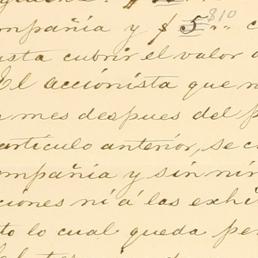 mpañia y $ 5 810
asta cubrir el valor d
El accionista que n
n mes despues del p
artículo anterior, se c
ompañia y sin nin
ciones ni á las exhi
to lo cual queda per